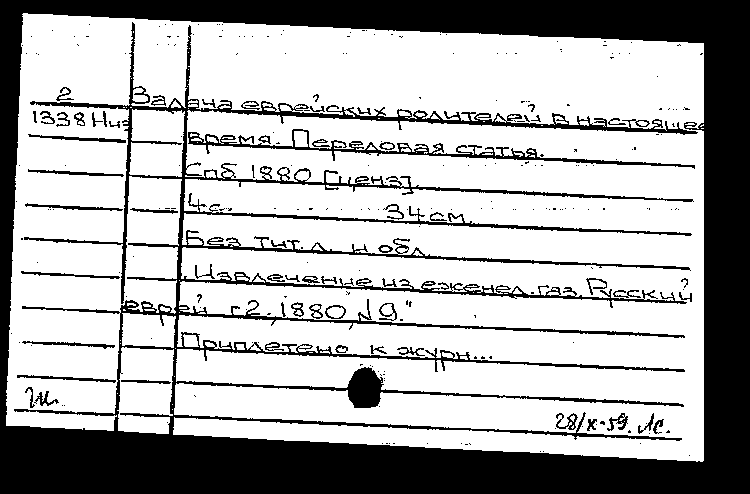 2 Задача еврейских родителей в настоящее
1338 Низ время. Передовая статья.
Спб, 1880 [ценз].
4с. 34 см.
Без тит.л. и обл.
"Извлечение из еженед. газ. Русский
еврей г2., 1880, №9."
Приплетено к журн...
28/X-59. Лс.